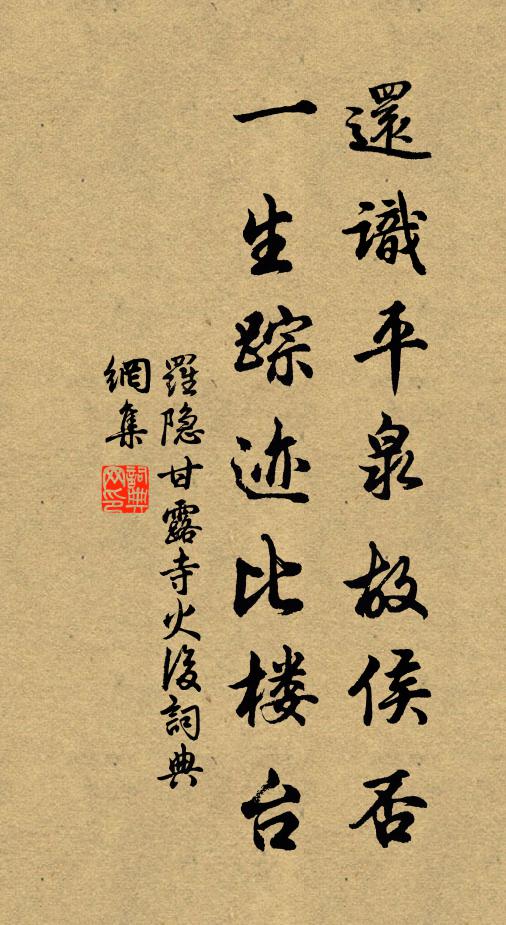 還識平泉故侯否
一生踪迹比楼台
羅隐甘露寺火後詞典
網集
詞典网印